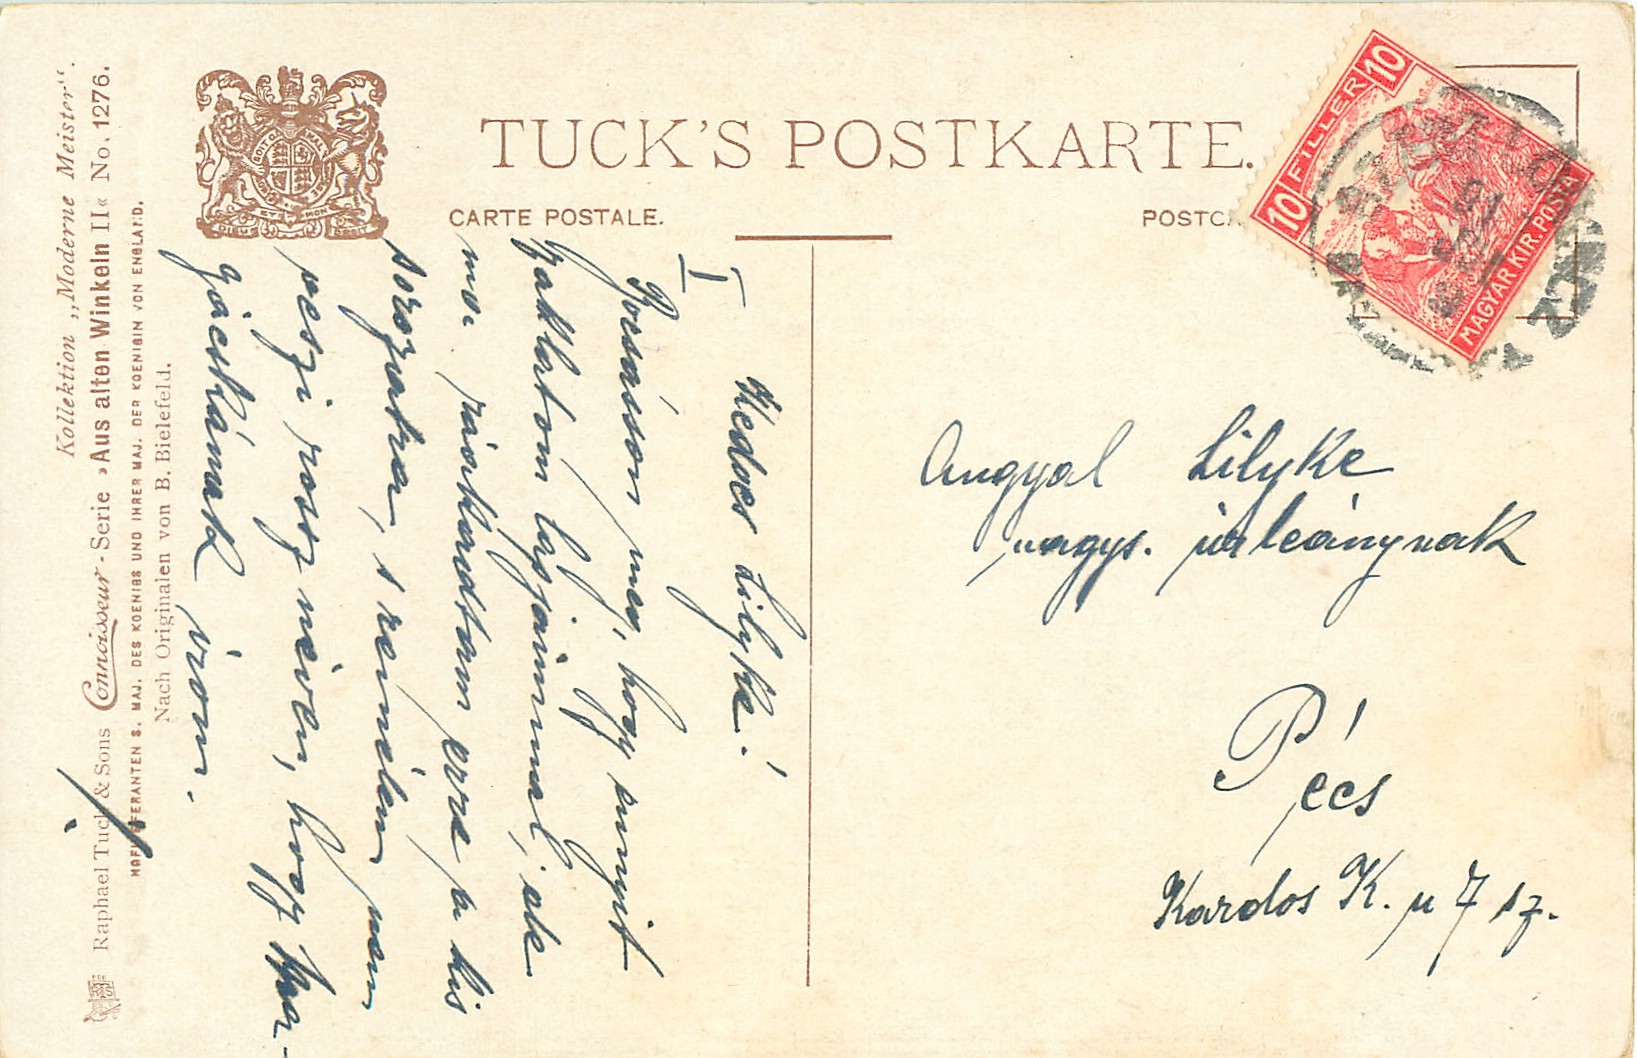 TUCK'S POSTKARTE.
CARTE POSTALE.
POSTCA
10 FILLÉR 10
MAGYAR KIR. POSTA
Kollektion „Moderne Meister“.
Raphael Tuck & Sons Connoisseur-Serie »Aus alten Winkeln II« No. 1276.
HOFLIEFERANTEN S. MAJ. DES KOENIGS UND IHRER MAJ. DER KOENIGIN VON ENGLAND.
Nach Originalen von B. Bielefeld.
I
Kedves Lilyke!
Bocsásson meg, hogy ennyit
zaklatom lapjaimmal, de
már ráakadtam erre a kis
sorozatra, s remélem nem
veszi rossz néven, hogy
gácskámat írom.
Angyal Lilyke
nagys. úrleánynak
Pécs
Kardos K. u 7 sz.